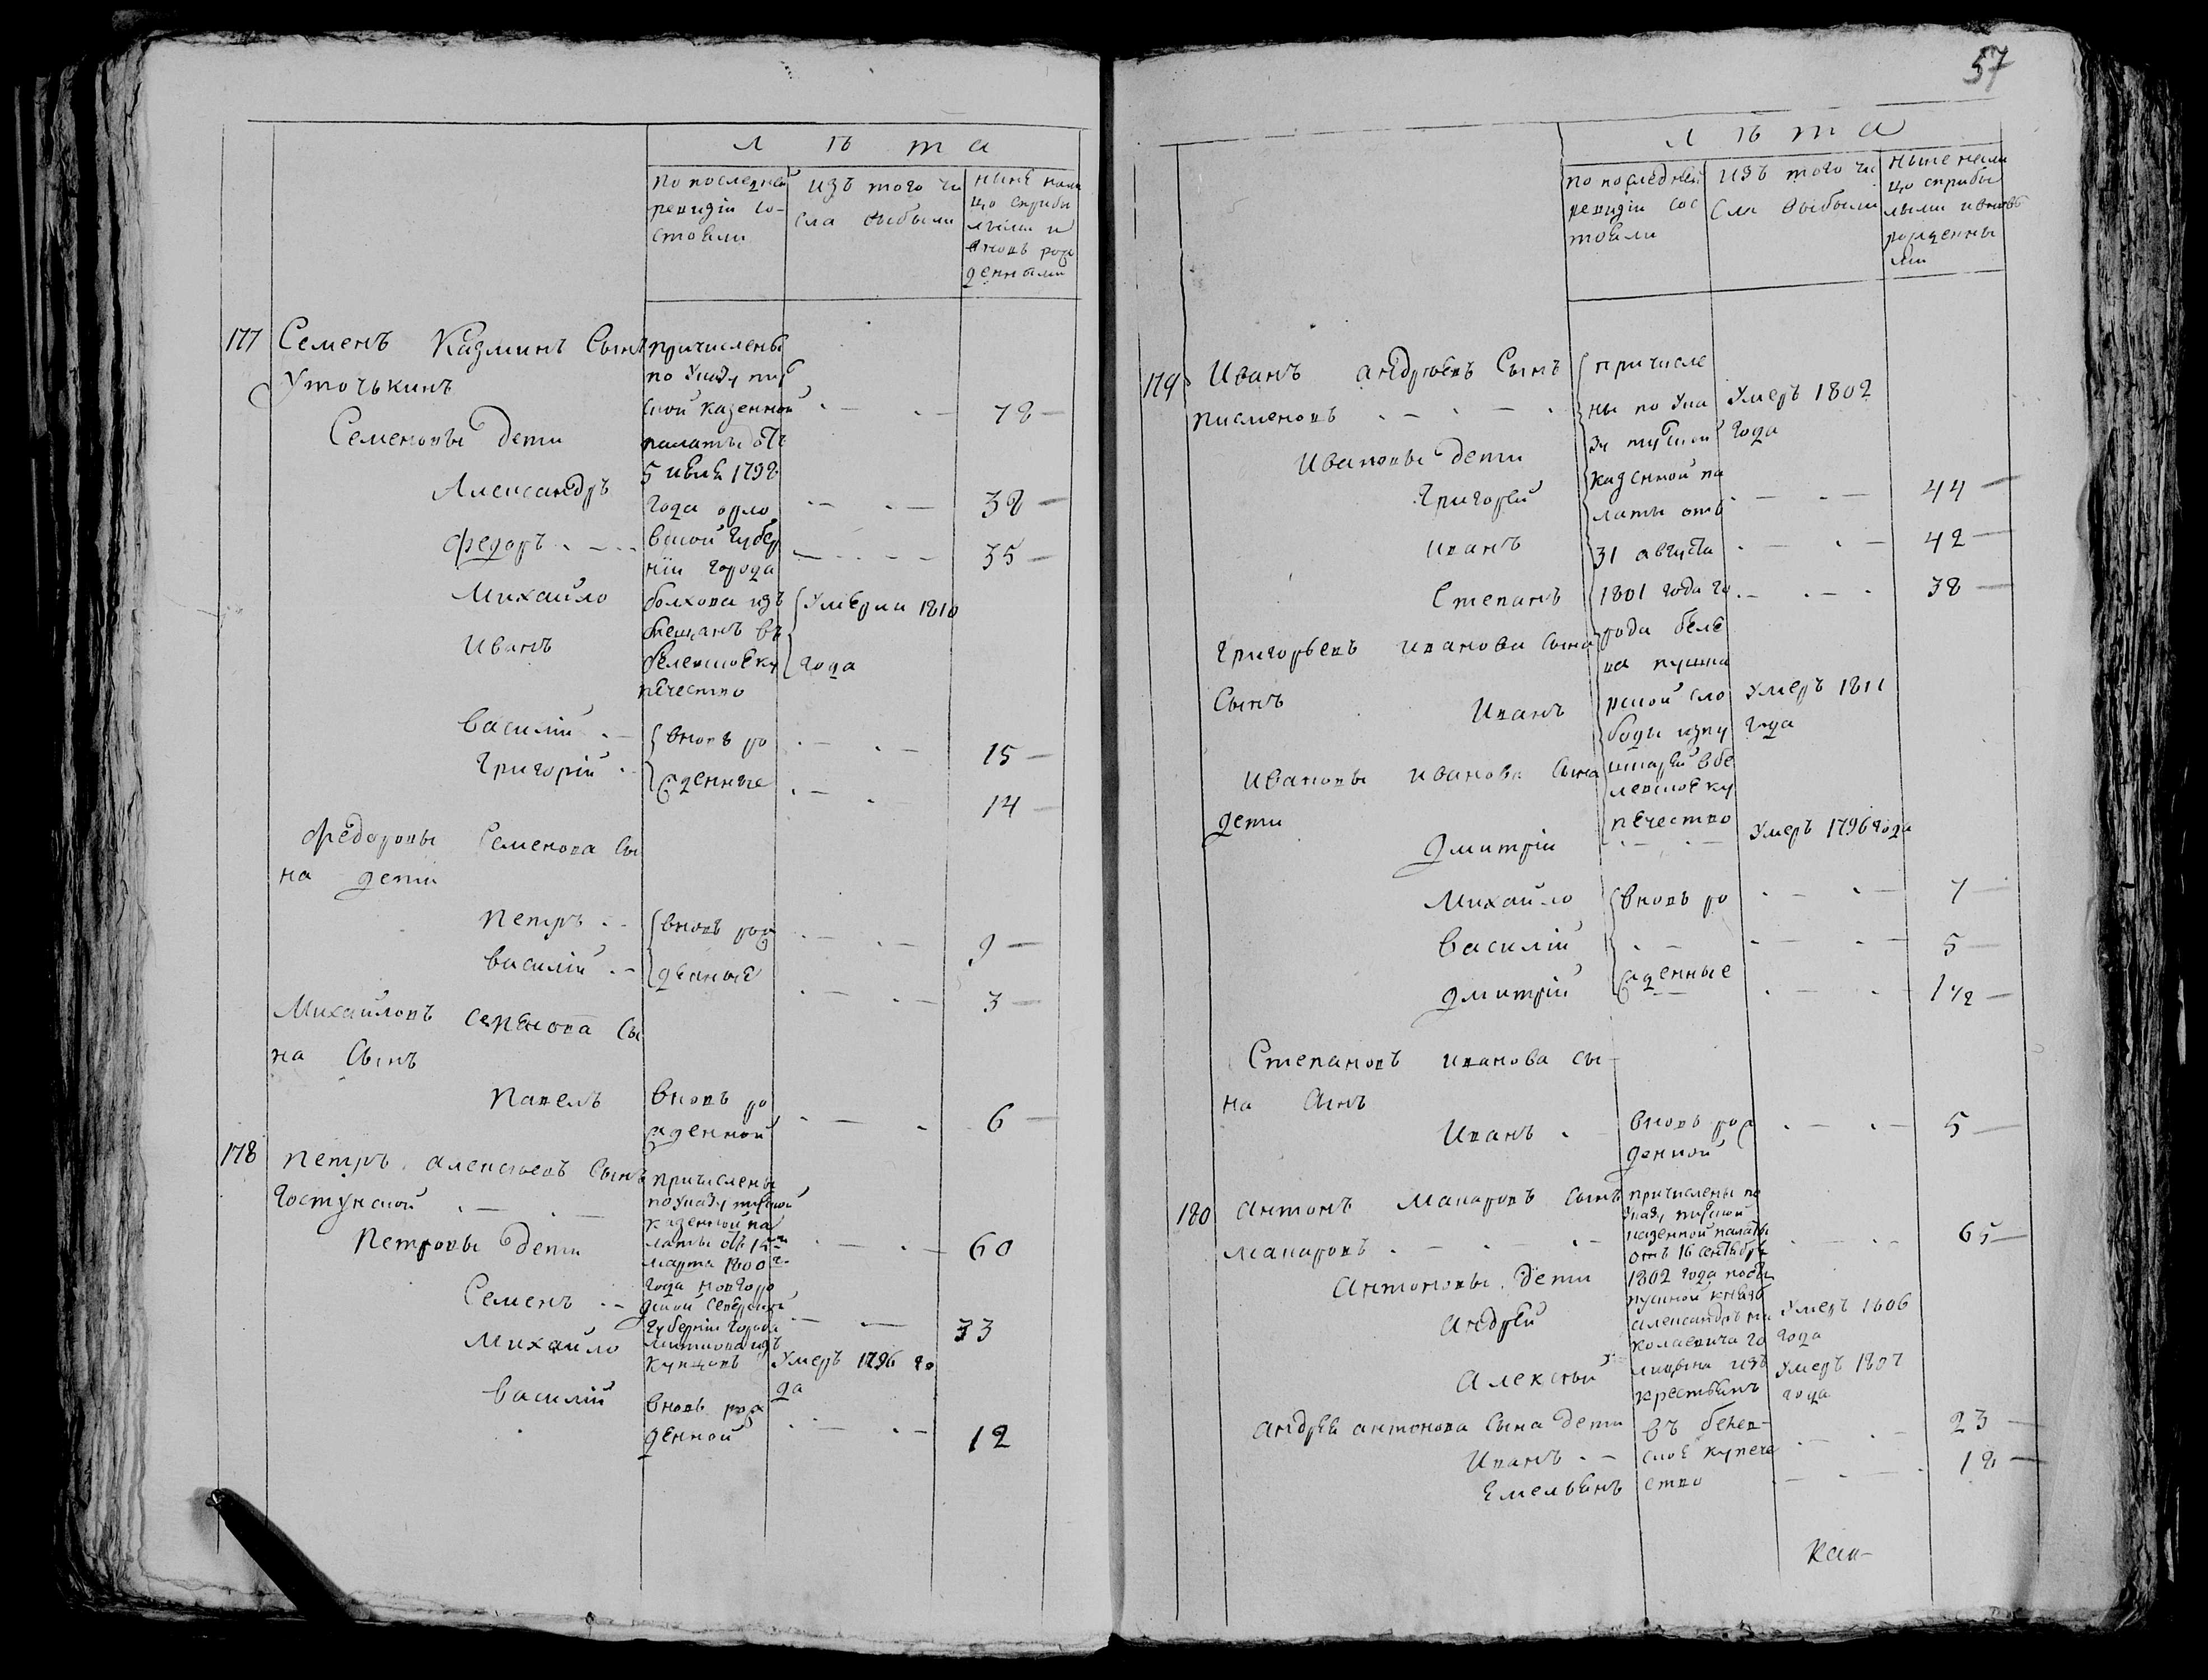 57
Л ѣ т а
по последней
ревизіи со-
стояли
изъ того чи
сла выбыли
ныне нали
цо сприбы
лыми и
вновь рож
денными
177 Семенъ Казминъ Сынъ
Уточькинъ
78
причислены
по Указу туль
ской казенной
палаты отъ
5 июля 1798
года орло
вской губер
ніи города
болхова изъ
мещанъ въ
белевское ку
печество
Семеновы дети
Александръ 38
Федоръ 35
Михайло
Иванъ
Умерли 1810
года
Василій 15
Григорій 14
вновь ро
жденные
Федоровы Семенова Сы
на дети
Петръ 9
Василій 3
вновь рож
денные
Михайловъ Семенова Сы
на Сынъ
Павелъ 6
вновь ро
жденной
178 Петръ Алексеевъ Сынъ
Гостунской 60
причислены
по Указу тульской
казенной па
латы отъ
марта 1800
года новгоро
дской северской
губерніи города
изъ
купцовъ
Петровы дети
Семенъ 33
Михайло Умеръ 1796 го
да
Василій 12
вновь рож
денной
Л ѣ т а
по последней
ревизіи сос
тояли
изъ того чи
сла выбыли
ныне нали
цо сприбы
лыми и вновь
рожденны
ми
179 Иванъ Андреевъ Сынъ
писменовъ
Умеръ 1802
года
причисле
ны по Ука
зу тульской
казенной па
латы отъ
31 августа
1801 года го
рода беле
ва пушка
рской сло
боды изпу
шкарей в бе
левское ку
печество
Ивановы дети
Григорей 44
Иванъ 42
Степанъ 38
Григорьевъ Иванова Сына
Сынъ Иванъ
Умеръ 1811
года
Ивановы Иванова Сына
дети
Дмитрій Умеръ 1796 года
Михайло 7
Василій 5
Дмитрій 1 1/2
вновь ро
жденные
Степановъ Иванова Сы
на Сынъ
Иванъ 5
вновь рож
денной
180 Антонъ Макаровъ Сынъ
Макаровъ 65
причислены по
Указу тульской
казенной палаты
отъ 16 сентября
1802 года
князя
александра ни
колаевича го
лицына изъ
крестьянъ
въ белев-
ское купече
ство
Антоновы дети
Андрей Умеръ 1806
года
Алексей Умеръ 1807
года
Андрея Антонова Сына дети
Иванъ 23
Емельянъ 18